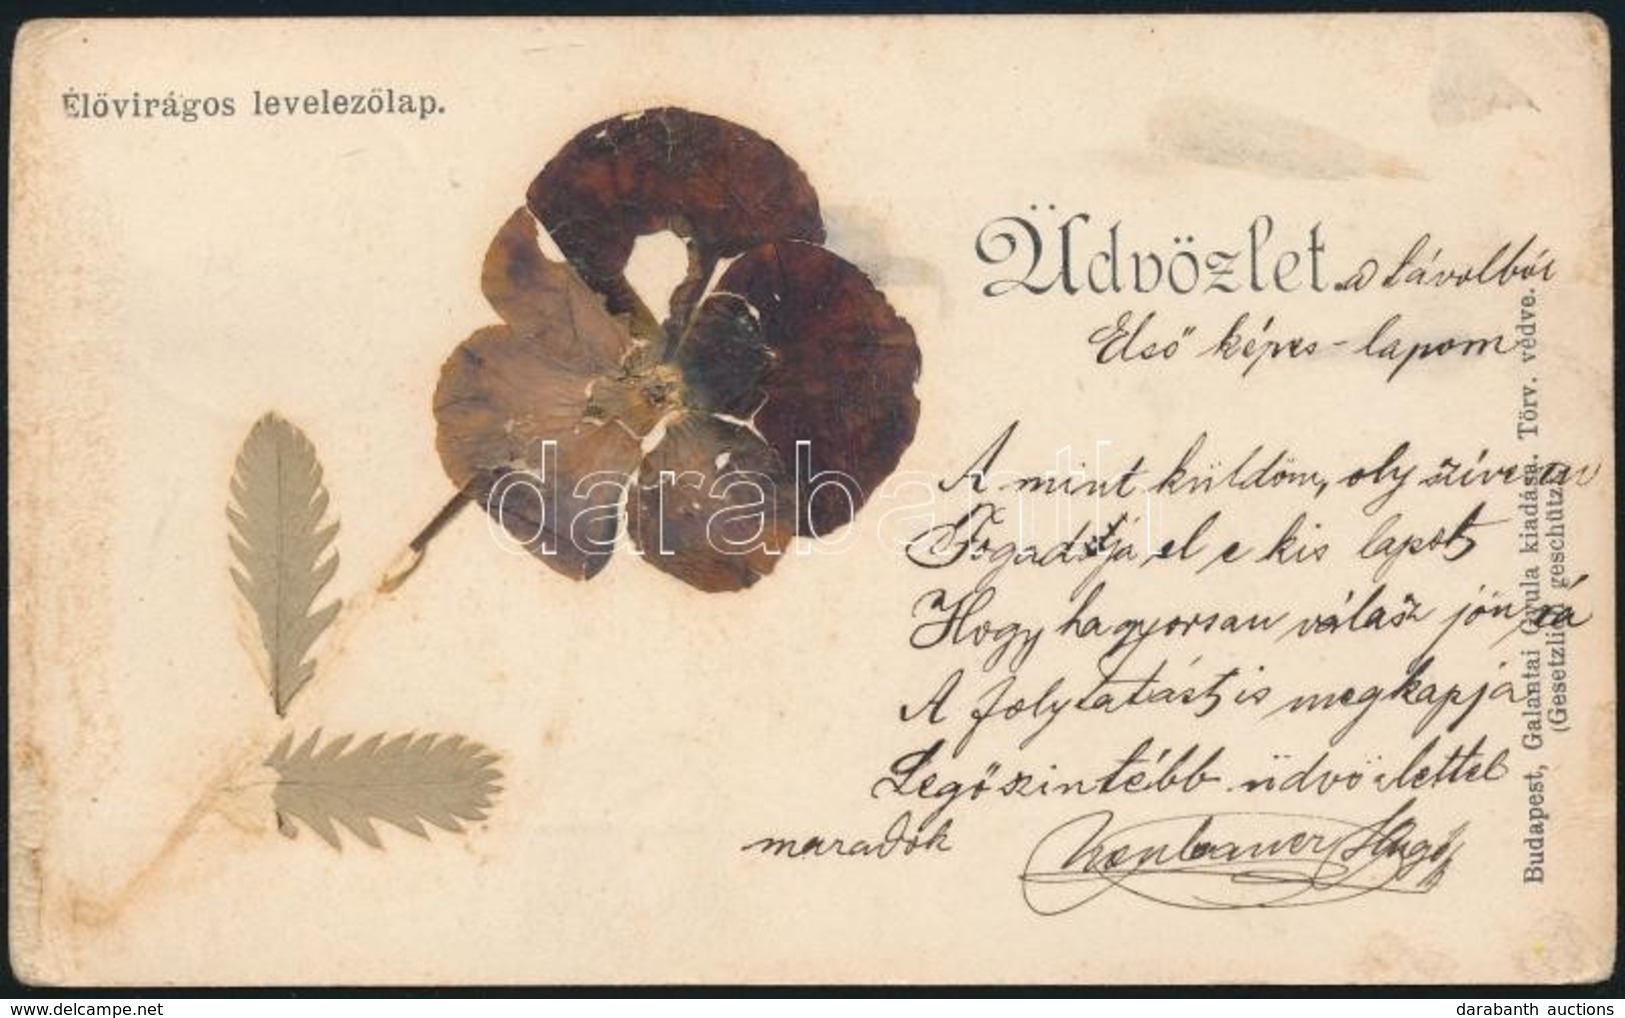 Élövirágos levelezölap.
Üdvözlet a távolból
Első képes-lapom
A mint küldöm, oly szívesen
Fogadja el e kis lapot
Hogy ha gyorsan válasz jön rá
A folytatást is megkapja
Legőszintébb üdvözlettel
maradok Hugó
Budapest, Galantai Gyula kiadása. Törv. védve.
(Gesetzlich geschützt)
darabanth
darabanth auctions